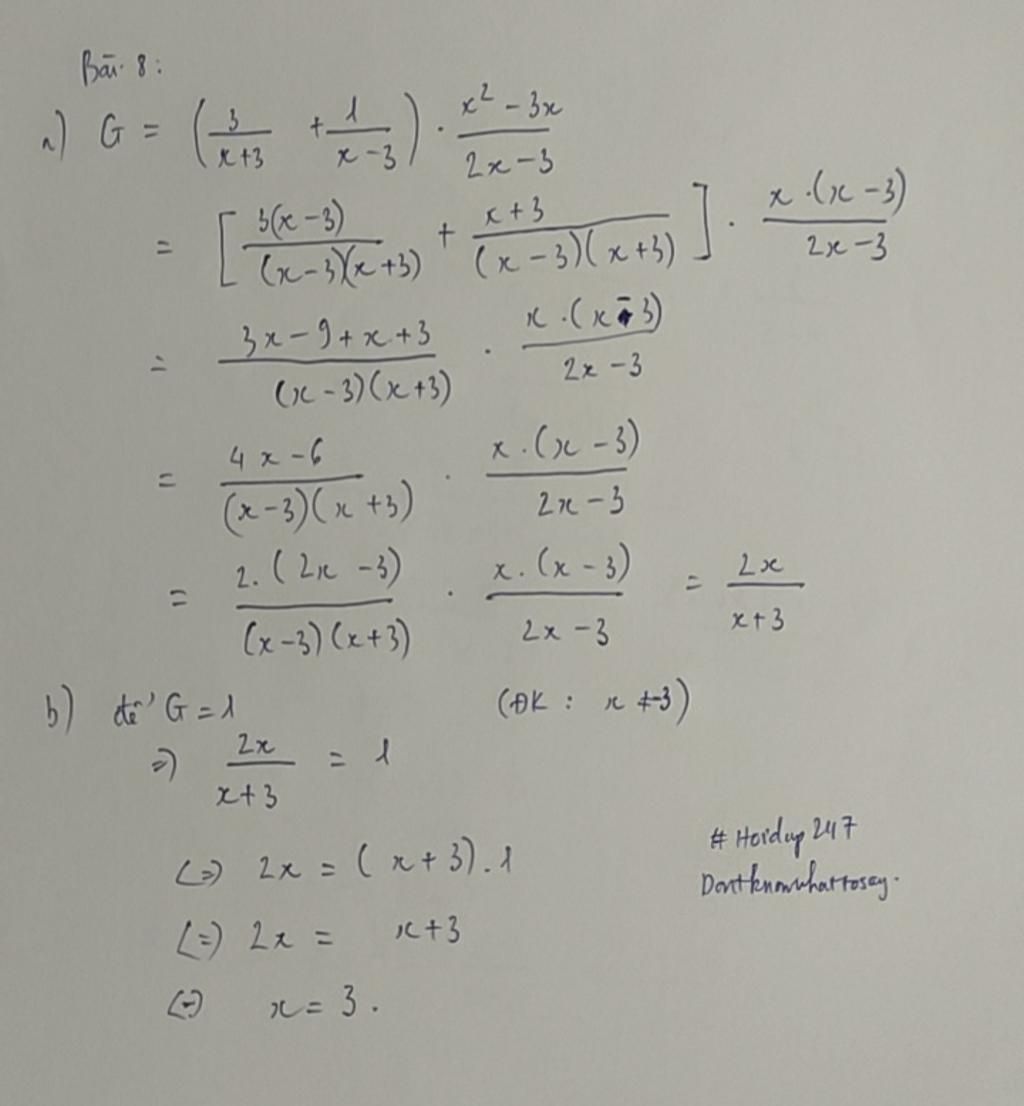 Bài 8:
a) G = (3/(x+3) + 1/(x-3)) . (x² - 3x)/(2x-3)
= [3(x-3)/((x-3)(x+3)) + (x+3)/((x-3)(x+3))] . x.(x-3)/(2x-3)
= (3x-9+x+3)/((x-3)(x+3)) . x.(x-3)/(2x-3)
= (4x-6)/((x-3)(x+3)) . x.(x-3)/(2x-3)
= 2.(2x-3)/((x-3)(x+3)) . x.(x-3)/(2x-3) = 2x/(x+3)
b) để G = 1 (ĐK : x ≠ -3)
=> 2x/(x+3) = 1
<=> 2x = (x+3).1
<=> 2x = x+3
<=> x = 3.
# Hoidap 247
Dontknowwhattosay.